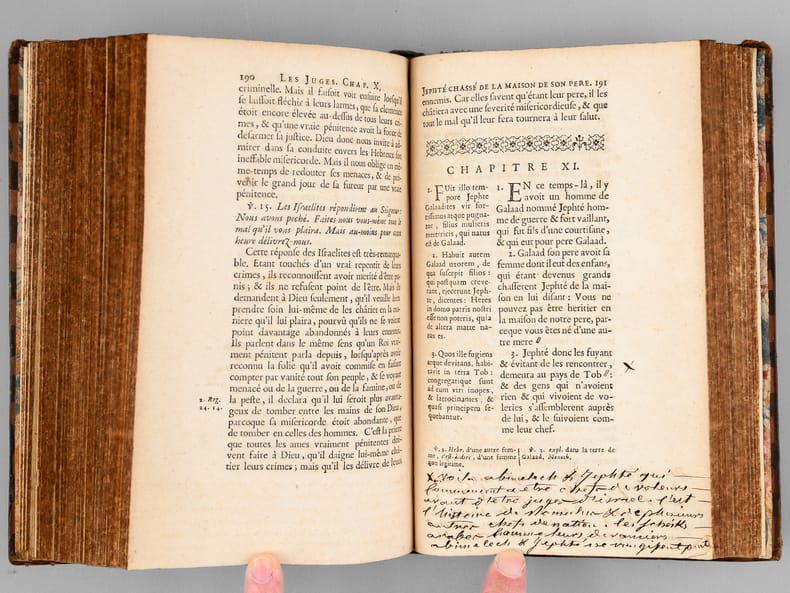 190 LES JUGES. CHAP. X,
criminelle. Mais il faisoit voir ensuite lorsqu'il
se laissoit fléchir à leurs larmes, que sa clémence
étoit encore élevée au-dessus de tous leurs cri-
mes, & qu'une vraie pénitence avoit la force de
desarmer sa justice. Dieu donc nous invite à ad-
mirer dans sa conduite envers les Hebreux son
ineffable misericorde. Mais il nous oblige en mê-
me-temps de redouter ses menaces, & de pré-
venir le grand jour de sa fureur par une vraie
pénitence.
℣. 15. Les Israelites répondirent au Seigneur:
Nous avons peché. Faites-nous vous-même tout le
mal qu'il vous plaira. Mais au-moins pour cette
heure délivrez-nous.
Cette réponse des Israelites est très-remarqua-
ble. Etant touchés d'un vrai repentir de leurs
crimes, ils reconnoissent avoir merité d'être pu-
nis; & ils ne refusent point de l'être. Mais ils
demandent à Dieu seulement, qu'il veuille bien
prendre soin lui-même de les châtier en la ma-
niere qu'il lui plaira, pourvû qu'ils ne se voient
point davantage abandonnés à leurs ennemis.
Ils parlent dans le même sens qu'un Roi vrai-
ment pénitent parla depuis, lorsqu'après avoir
reconnu la folie qu'il avoit commise en faisant
compter par vanité tout son peuple, & se voyant
menacé ou de la guerre, ou de la famine, ou de
2. Reg. la peste, il déclara qu'il lui seroit plus avanta-
24. 14. geux de tomber entre les mains de son Dieu,
parceque sa misericorde étoit abondante, que
de tomber en celles des hommes. C'est la priere
que toutes les ames vraiment pénitentes doi-
vent faire à Dieu, qu'il daigne lui-même châ-
tier leurs crimes; mais qu'il les délivre de leurs
JEPHTÉ CHASSÉ DE LA MAISON DE SON PERE. 191
ennemis. Car elles savent qu'étant leur pere, il les
châtiera avec une severité misericordieuse, & que
tout le mal qu'il leur fera tournera à leur salut.
CHAPITRE XI.
1. FUit illo tem-
pore Jephte
Galaadites vir for-
tissimus atque pugna-
tor, filius mulieris
meretricis, qui natus
est de Galaad.
2. Habuit autem
Galaad uxorem, de
qua suscepit filios:
qui postquam creve-
rant, ejecerunt Jeph-
te, dicentes: Heres
in domo patris nostri
esse non poteris, quia
de altera matre na-
tus es.
3. Quos ille fugiens
atque devitans, habi-
tavit in terra Tob:
congregatique sunt
ad eum viri inopes,
& latrocinantes, &
quasi principem se-
quebantur.
1. EN ce temps-là, il y
avoit un homme de
Galaad nommé Jephté, hom-
me de guerre & fort vaillant,
qui fut fils d'une courtisane,
& qui eut pour pere Galaad.
2. Galaad son pere avoit sa
femme dont il eut des enfans,
qui étant devenus grands
chasserent Jephté de la mai-
son en lui disant: Vous ne
pouvez pas être heritier en
la maison de notre pere, par-
ceque vous êtes né d'une au-
tre mere
3. Jephté donc les fuyant
& évitant de les rencontrer,
demeura au pays de Tob:
& des gens qui n'avoient
rien & qui vivoient de vo-
leries s'assemblerent auprès
de lui, & le suivoient com-
me leur chef.
X
℣. 2. Hebr. d'une autre fem-
me, c'est-à-dire, d'une femme
non légitime.
℣. 3. expl. dans la terre de
Galaad,
X voila abimelech & Jephté qui
commencent a etre chefs de voleurs
avant d'etre juges d'israel. c'est
l'histoire de & de plusieurs
autres chefs de nation. les scheiks
arabes
abimelech & Jephté ne point